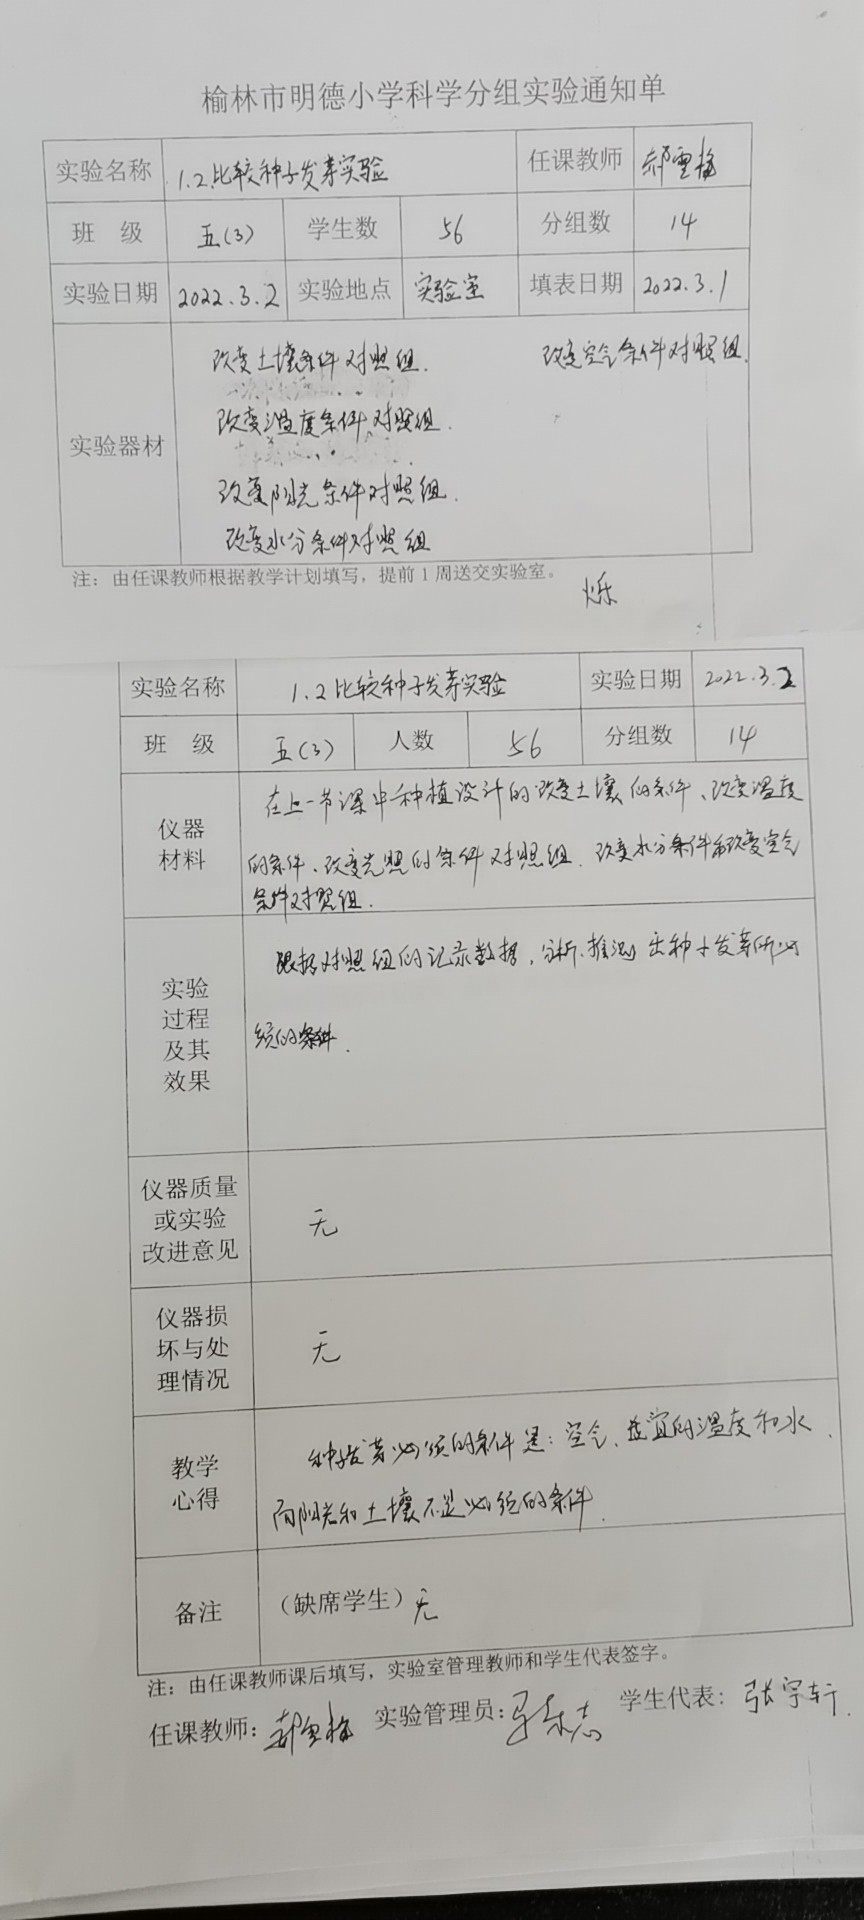 榆林市明德小学科学分组实验通知单
实验名称 1.2比较种子发芽实验 任课教师 郝雪梅
班 级 五(3) 学生数 56 分组数 14
实验日期 2022.3.2 实验地点 实验室 填表日期 2022.3.1
实验器材
改变土壤条件对照组. 改变空气条件对照组.
改变温度条件对照组.
改变阳光条件对照组.
改变水分条件对照组
注：由任课教师根据教学计划填写，提前1周送交实验室。
烁
实验名称 1.2比较种子发芽实验 实验日期 2022.3.2
班 级 五(3) 人数 56 分组数 14
仪器
材料
在上一节课中种植设计的改变土壤的条件、改变温度
的条件、改变光照的条件对照组. 改变水分条件和改变空气
条件对照组.
实验
过程
及其
效果
跟据对照组的记录数据，分析.推测出种子发芽所必
须的条件.
仪器质量
或实验
改进意见
无
仪器损
坏与处
理情况
无
教学
心得
种子发芽必须的条件是：空气、适宜的温度和水.
而阳光和土壤不是必须的条件.
备注 （缺席学生）无
注：由任课教师课后填写，实验室管理教师和学生代表签字。
任课教师：郝雪梅 实验管理员： 学生代表：张宇轩.